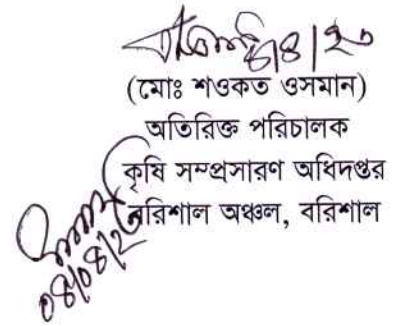 ৪/৪/২০
(মোঃ শওকত ওসমান)
অতিরিক্ত পরিচালক
কৃষি সম্প্রসারণ অধিদপ্তর
বরিশাল অঞ্চল, বরিশাল
০৪/০৪/২০